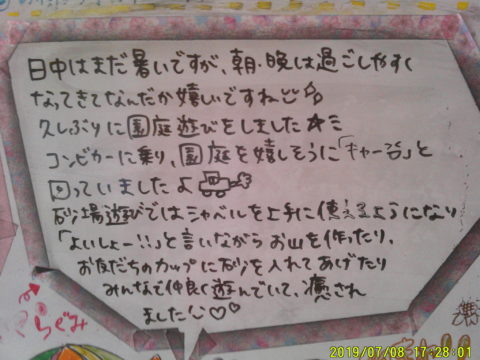 日中はまだ暑いですが、朝・晩は過ごしやすく
なってきてなんだか嬉しいですね
久しぶりに園庭遊びをしました☆ミ
コンビカーに乗り、園庭を嬉しそうに「キャー」と
回っていましたよ
砂場遊びではシャベルを上手に使えるようになり
「よいしょー!!」と言いながらお山を作ったり、
お友だちのカップに砂を入れてあげたり
みんなで仲良く遊んでいて、癒され
ました♡♡
くらぐみ
2019/07/08 17:28:01